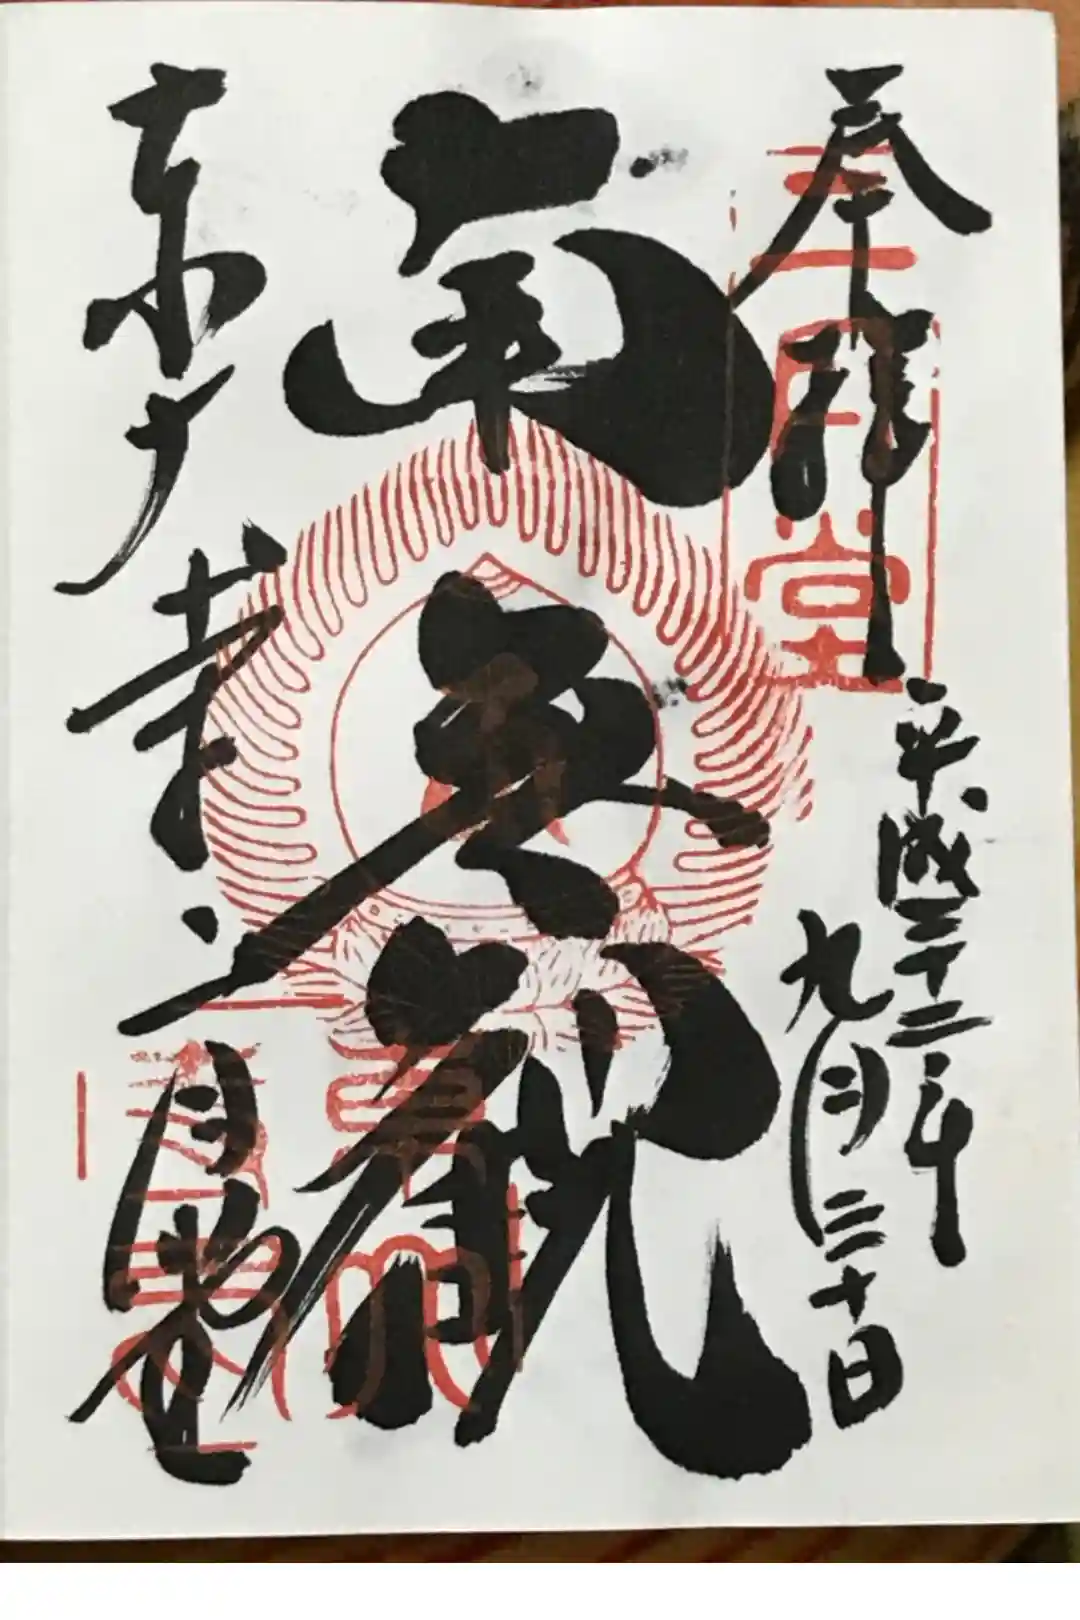 奉拝
二月堂
平成二十二年
九月三十日
南無観
東大寺
二月堂